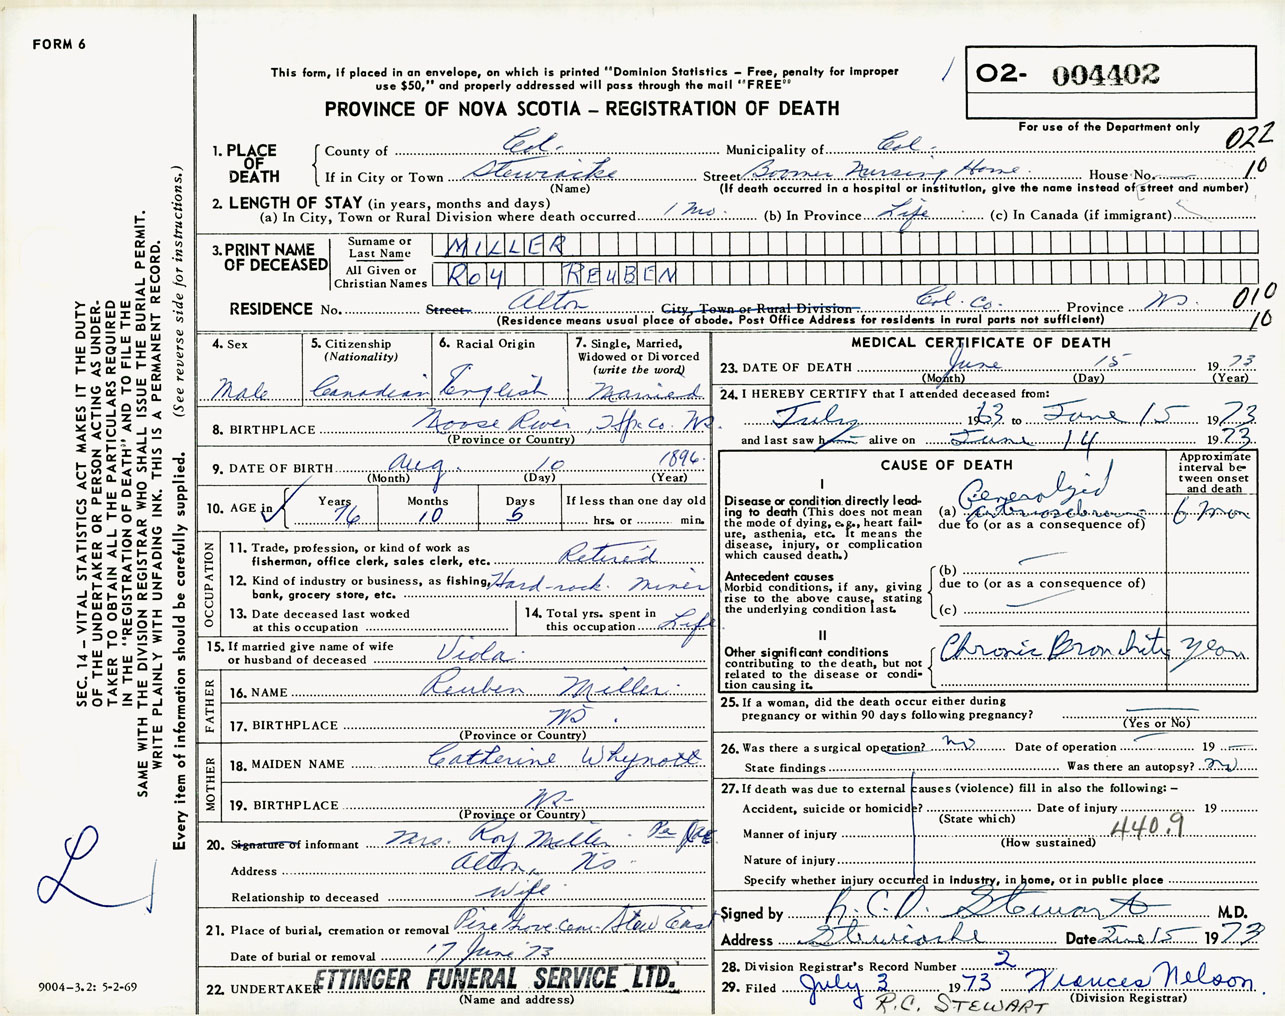 FORM 6
This form, if placed in an envelope, on which is printed "Dominion Statistics – Free, penalty for improper
use $50," and properly addressed will pass through the mail "FREE"
PROVINCE OF NOVA SCOTIA – REGISTRATION OF DEATH
02- 004402
For use of the Department only
022
10
1. PLACE OF DEATH
County of Col. Municipality of Col.
If in City or Town Stewiacke Street Boomer Nursing Home House No.
(Name) (If death occurred in a hospital or institution, give the name instead of street and number)
2. LENGTH OF STAY (in years, months and days)
(a) In City, Town or Rural Division where death occurred 1 mo. (b) In Province Life (c) In Canada (if immigrant)
3. PRINT NAME OF DECEASED
Surname or Last Name MILLER
All Given or Christian Names ROY REUBEN
RESIDENCE No. Street Alton City, Town or Rural Division Col. Co. Province NS. 010
(Residence means usual place of abode. Post Office Address for residents in rural parts not sufficient) 10
4. Sex Male
5. Citizenship (Nationality) Canadian
6. Racial Origin English
7. Single, Married, Widowed or Divorced (write the word) Married
8. BIRTHPLACE Moose River, Hfx. Co. NS.
(Province or Country)
9. DATE OF BIRTH Aug. 10 1896
(Month) (Day) (Year)
10. AGE in Years 76 Months 10 Days 5 If less than one day old hrs. or min.
OCCUPATION
11. Trade, profession, or kind of work as
fisherman, office clerk, sales clerk, etc. Retired
12. Kind of industry or business, as fishing,
bank, grocery store, etc. Hard-rock miner
13. Date deceased last worked
at this occupation
14. Total yrs. spent in
this occupation Life
15. If married give name of wife
or husband of deceased Viola
FATHER
16. NAME Reuben Miller
17. BIRTHPLACE NS.
(Province or Country)
MOTHER
18. MAIDEN NAME Catherine Whynott
19. BIRTHPLACE NS
(Province or Country)
20. Signature of informant Mrs. Roy Miller Per
Address Alton, NS
Relationship to deceased Wife
21. Place of burial, cremation or removal Pine Grove Cem. Stew East
Date of burial or removal 17 June 73
22. UNDERTAKER ETTINGER FUNERAL SERVICE LTD.
(Name and address)
MEDICAL CERTIFICATE OF DEATH
23. DATE OF DEATH June 15 1973
(Month) (Day) (Year)
24. I HEREBY CERTIFY that I attended deceased from:
July to June 15 1973
and last saw alive on June 14 1973
CAUSE OF DEATH
Approximate interval between onset and death
I
Disease or condition directly lead-
ing to death (This does not mean
the mode of dying, e.g., heart fail-
ure, asthenia, etc. It means the
disease, injury, or complication
which caused death.)
(a) Generalized 6 mon
due to (or as a consequence of)
Antecedent causes
Morbid conditions, if any, giving
rise to the above cause, stating
the underlying condition last.
(b)
due to (or as a consequence of)
(c)
II
Other significant conditions
contributing to the death, but not
related to the disease or condi-
tion causing it.
Chronic Bronchitis
25. If a woman, did the death occur either during
pregnancy or within 90 days following pregnancy?
(Yes or No)
26. Was there a surgical operation? no Date of operation 19
State findings Was there an autopsy? no
27. If death was due to external causes (violence) fill in also the following: –
Accident, suicide or homicide? Date of injury 19
(State which)
Manner of injury 440.9
(How sustained)
Nature of injury
Specify whether injury occurred in industry, in home, or in public place
Signed by R. C. D. Stewart M.D.
Address Stewiacke Date June 15 1973
28. Division Registrar's Record Number 2
29. Filed July 3 1973 Frances Nelson
(Division Registrar)
R.C. STEWART
SEC. 14 – VITAL STATISTICS ACT MAKES IT THE DUTY
OF THE UNDERTAKER OR PERSON ACTING AS UNDER-
TAKER TO OBTAIN ALL THE PARTICULARS REQUIRED
IN THE "REGISTRATION OF DEATH" AND TO FILE THE
SAME WITH THE DIVISION REGISTRAR WHO SHALL ISSUE THE BURIAL PERMIT.
WRITE PLAINLY WITH UNFADING INK. THIS IS A PERMANENT RECORD.
Every item of information should be carefully supplied. (See reverse side for instructions.)
9004-3.2: 5-2-69